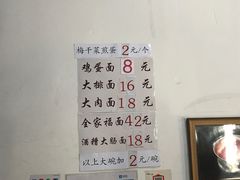 梅干菜煎蛋2元/个
鸡蛋面8元
大排面16元
大肉面18元
全家福面42元
酒糟大肠面18元
以上大碗加2元/碗